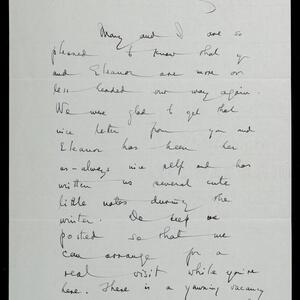 Mary and I are so
pleased to know that you
and Eleanor are more or
less headed our way again.
We were glad to get that
nice letter from you and
Eleanor has been her
as-always nice self and has
written us several cute
little notes during the
winter. Do keep us
posted so that we
can arrange for a
real visit while you're
here. There is a yawning vacancy